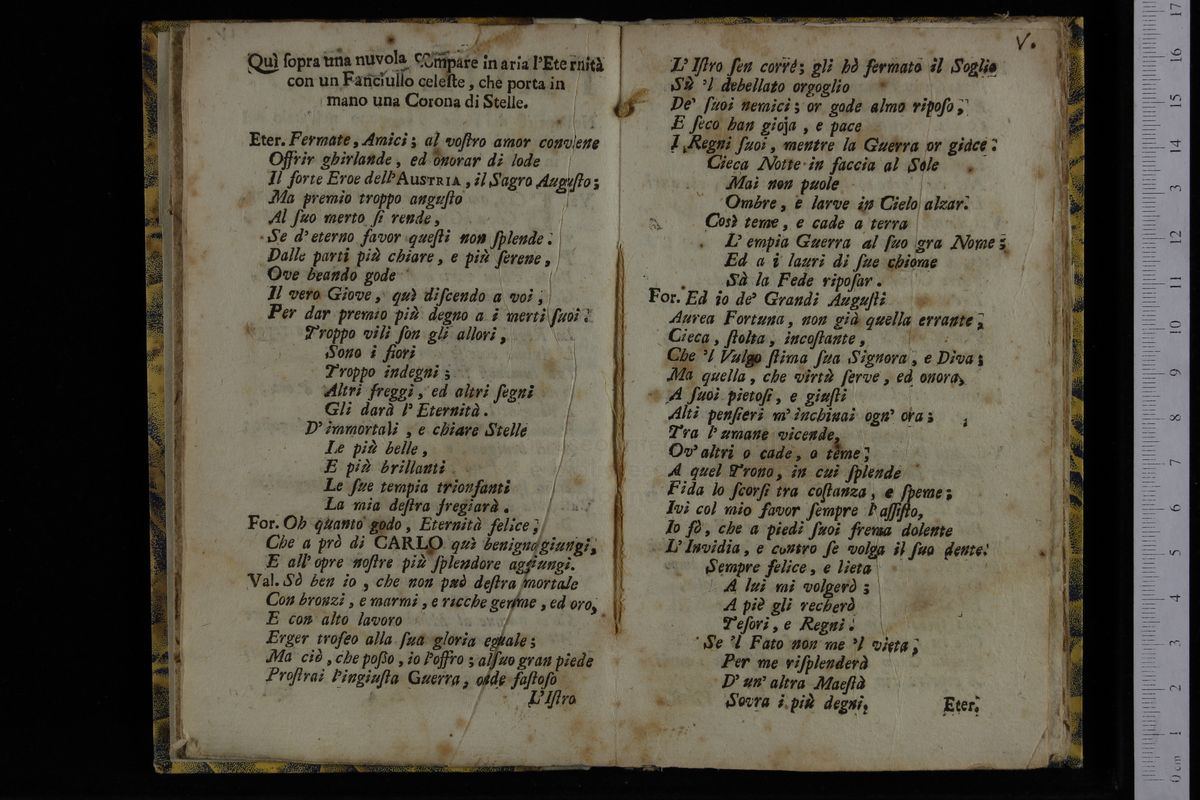 Quì ſopra una nuvola compare in aria l'Eternità
con un Fanciullo celeſte, che porta in
mano una Corona di Stelle.
Eter. Fermate, Amici; al voſtro amor conviene
Offrir ghirlande, ed onorar di lode
Il forte Eroe dell'AUSTRIA, il Sagro Auguſto;
Ma premio troppo anguſto
Al ſuo merto ſi rende,
Se d'eterno favor queſti non ſplende.
Dalle parti più chiare, e più ſerene,
Ove beando gode
Il vero Giove, quì diſcendo a voi,
Per dar premio più degno a i merti ſuoi.
Troppo vili ſon gli allori,
Sono i fiori
Troppo indegni;
Altri freggi, ed altri ſegni
Gli darà l'Eternità.
D'immortali, e chiare Stelle
Le più belle,
E più brillanti
Le ſue tempia trionfanti
La mia deſtra fregiarà.
For. Oh quanto godo, Eternità felice,
Che a prò di CARLO quì benigna giungi,
E all'opre noſtre più ſplendore aggiungi.
Val. Sò ben io, che non può deſtra mortale
Con bronzi, e marmi, e ricche gemme, ed oro,
E con alto lavoro
Erger trofeo alla ſua gloria eguale;
Ma ciò, che poßo, io l'offro; al ſuo gran piede
Proſtrai l'ingiuſta Guerra, onde faſtoſo
L'Iſtro
V.
L'Iſtro ſen corre; gli hò fermato il Soglio
Sù 'l debellato orgoglio
De' ſuoi nemici; or gode almo ripoſo,
E ſeco han gioja, e pace
I Regni ſuoi, mentre la Guerra or giace.
Cieca Notte in faccia al Sole
Mai non puole
Ombre, e larve in Cielo alzar.
Così teme, e cade a terra
L'empia Guerra al ſuo gra Nome;
Ed a i lauri di ſue chiome
Sà la Fede ripoſar.
For. Ed io de' Grandi Auguſti
Aurea Fortuna, non già quella errante,
Cieca, ſtolta, incoſtante,
Che 'l Vulgo ſtima ſua Signora, e Diva;
Ma quella, che virtù ſerve, ed onora,
A ſuoi pietoſi, e giuſti
Alti penſieri m'inchinai ogn' ora;
Tra l'umane vicende,
Ov'altri o cade, o teme,
A quel Trono, in cui ſplende
Fida lo ſcorſi tra coſtanza, e ſpeme;
Ivi col mio favor ſempre l'aſſiſto,
Io fò, che a piedi ſuoi frema dolente
L'Invidia, e contro ſe volga il ſuo dente.
Sempre felice, e lieta
A lui mi volgerò;
A piè gli recherò
Teſori, e Regni.
Se 'l Fato non me 'l vieta,
Per me riſplenderà
D'un'altra Maeſtà
Sovra i più degni.
Eter.